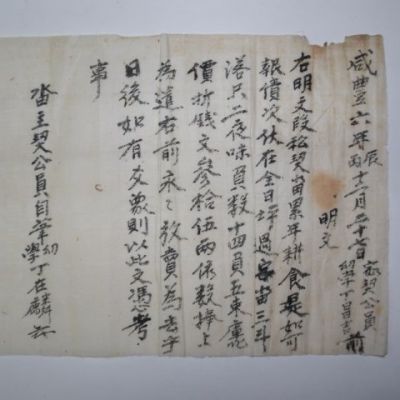 咸豊六年丙辰十二月二十七日 契公員幼學丁昌吉前
明文
右明文段松契畓累年耕食是如可
報債次伏在余日坪 畓三斗
落只二夜味員數十四員五束
價折錢文參拾伍兩依數捧上
為遣右前永〻放賣為去乎
日後如有爻象則以此文憑考
事
畓主契公員自筆幼學丁在麟